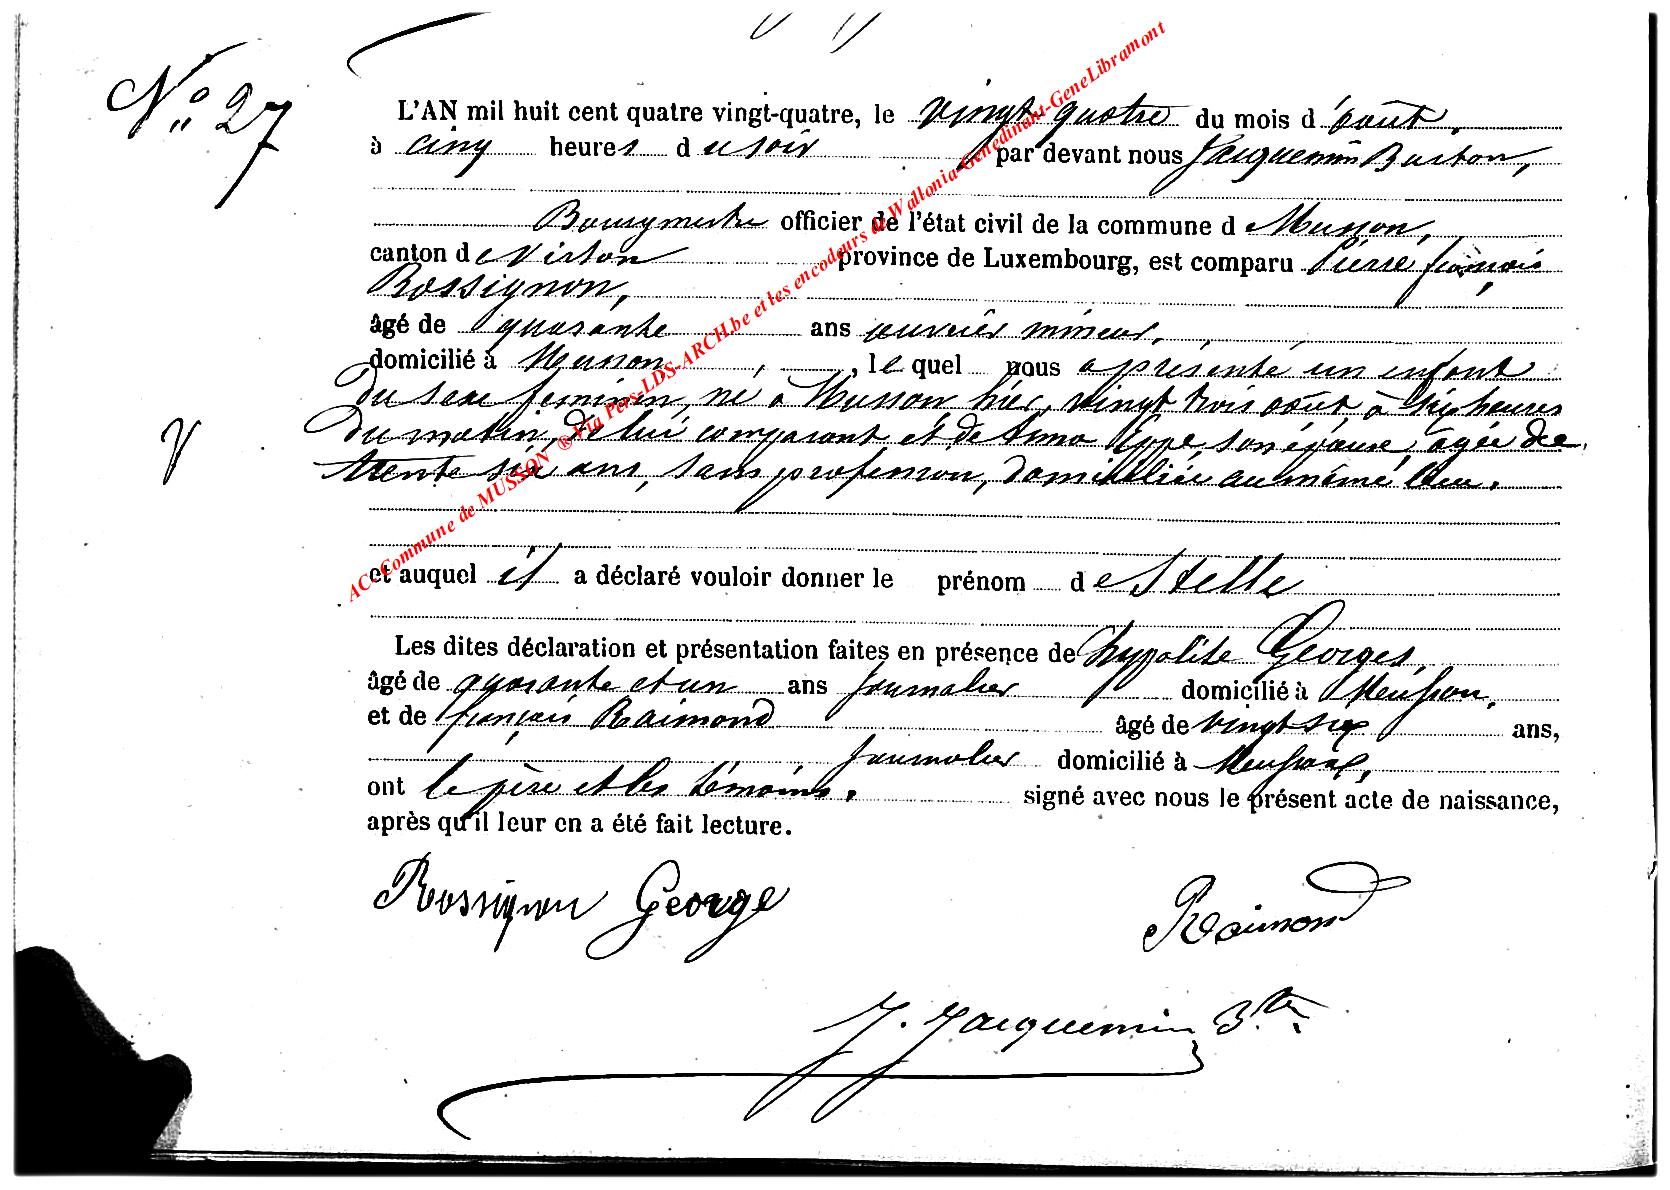 N° 27
L'AN mil huit cent quatre vingt-quatre, le vingt quatre du mois d'août,
à cinq heures du soir par devant nous Jacquemin Baston,
Bourgmestre officier de l'état civil de la commune de Musson,
canton de Virton province de Luxembourg, est comparu Pierre françois
Rossignon,
âgé de quarante ans ouvrier mineur,
domicilié à Musson, lequel nous a présenté un enfant
du sexe feminin, né à Musson hier, vingt trois août à six heures
du matin, de lui comparant et de Anna Eppe, son épouse, agée de
trente six ans, sans profession, domiciliée au même lieu.
et auquel il a déclaré vouloir donner le prénom d estelle
Les dites déclaration et présentation faites en présence de hypolite Georges,
âgé de quarante et un ans journalier domicilié à Musson,
et de françois Raimond âgé de vingt six ans,
journalier domicilié à Musson,
ont le père et les témoins. signé avec nous le présent acte de naissance,
après qu'il leur en a été fait lecture.
Rossignon George
Raimond
J. Jacquemin B.tre
AC Commune de MUSSON ® Via Pers-LDS-ARCH.be et les encodeurs de Wallonia-Genedinant-GeneLibramont